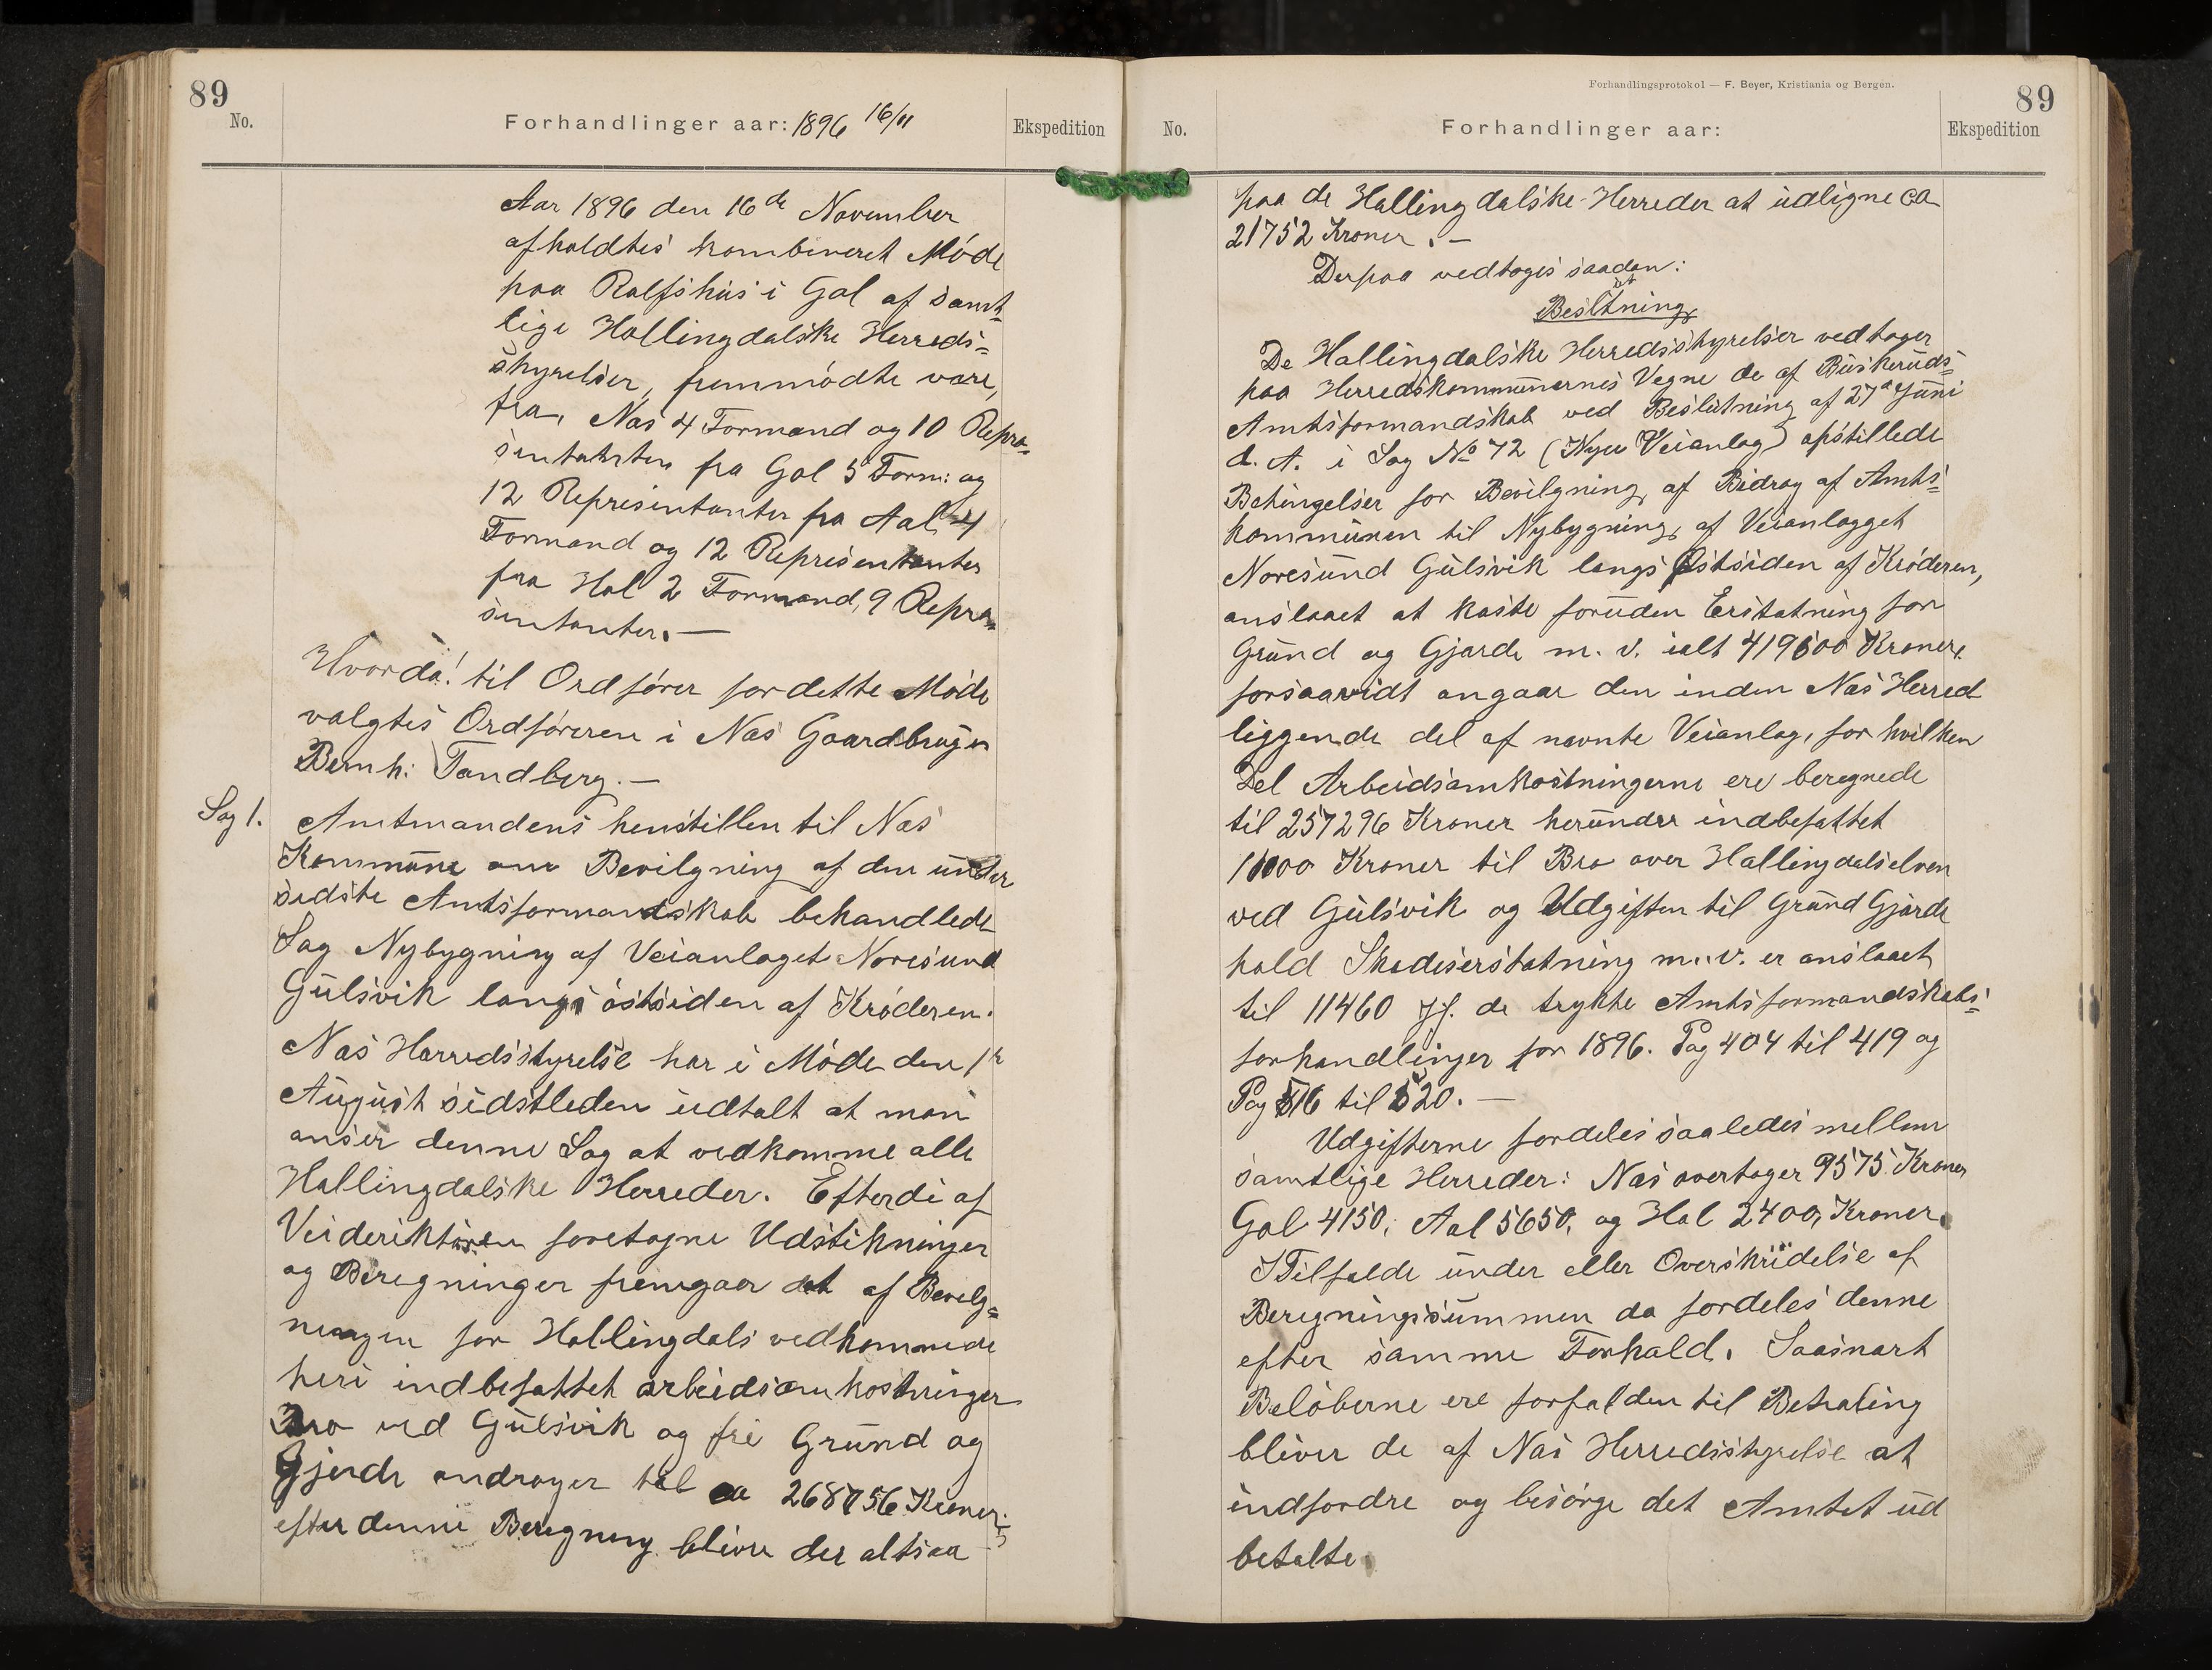 89
No.
Forhandlinger aar: 1896 16/11
Ekspedition
Aar 1896 den 16de November
afholdtes kombineret Møde
paa Rolfshus i Gol af samt-
lige Hallingdalske Herreds=
styrelser, fremmødte vare,
fra, Nas 4 Formænd og 10 Repræ-
sentanter fra Gol 5 Form: og
12 Representanter fra Aal 4
Formænd og 12 Representanter
fra Hol 2 Formænd, 9 Repræ-
sentanter. —
Hvorda! til Ordfører for dette Møde
valgtes Ordføreren i Nas Gaardbruger
Bernh: Tandberg. —
Sag 1.
Amtmandens henstillen til Nas
Kommune om Bevilgning af den under
sidste Amtsformandskab behandlede
Sag Nybygning af Veianlaget Noresund
Gulsvik langs østsiden af Krøderen.
Nas Herredsstyrelse har i Møde den 1ste
August sidstleden udtalt at man
anser denne Sag at vedkomme alle
Hallingdalske Herreder. Efter de af
Veideriktøren foretagne Udstikninger
og Beregninger fremgaar det af Bevilg=
ningen for Hallingdals vedkommede
heri indbefattet arbeidsomkostninger
Bro ved Gulsvik og fri Grund og
Gjerde andrager til ca 268756 Kroner;
efter denne Beregning blivre der altsaa
Forhandlingsprotokol — F. Beyer, Kristiania og Bergen.
89
No.
Forhandlinger aar:
Ekspedition
paa de Hallingdalske Herreder at udligne ca
21752 Kroner. —
Derpaa vedtoges saadan:
Beslutning
De Hallingdalske Herredsstyrelser vedtager
paa Herredskommunernes Vegne de af Buskeruds=
Amtsformandskab ved Beslutning af 27de Juni
d. A. i Sag No 72 (Nye Veianlæg) opstillede
Betingelser for Bevilgning af Bidrag af Amts=
kommunen til Nybygning af Veianlægget
Noresund Gulsvik langs Østsiden af Krøderen,
anslaaet at koste foruden Erstatning for
Grund og Gjærde m. v. ialt 419600 Kroner.
forsaavidt angaar den inden Nas Herred
liggende del af nævnte Veianlæg, for hvilken
Del Arbeidsomkostningerne ere beregnede
til 257296 Kroner herunder indbefattet
11000 Kroner til Bro over Hallingdalselven
ved Gulsvik og Udgiften til Grund Gjærde
hold Skadeserstatning m.v. er anslaaet
til 11460 jf. de trykte Amtsformandskabs=
forhandlinger for 1896. Pag 404 til 419 og
Pag 516 til 520. —
Udgifterne fordeles saaledes mellem
samtlige Herreder: Nas overtager 9575 Kroner
Gol 4150, Aal 5650, og Hol 2400, Kroner.
I Tilfælde under eller Overskridelse af
Beregningssummen da fordeles denne
efter samme Forhold. Saasnart
Beløberne ere forfalden til Betaling
bliver de af Nas Herredsstyrelse at
indfordre og besørge det Amtet ud
betalte.